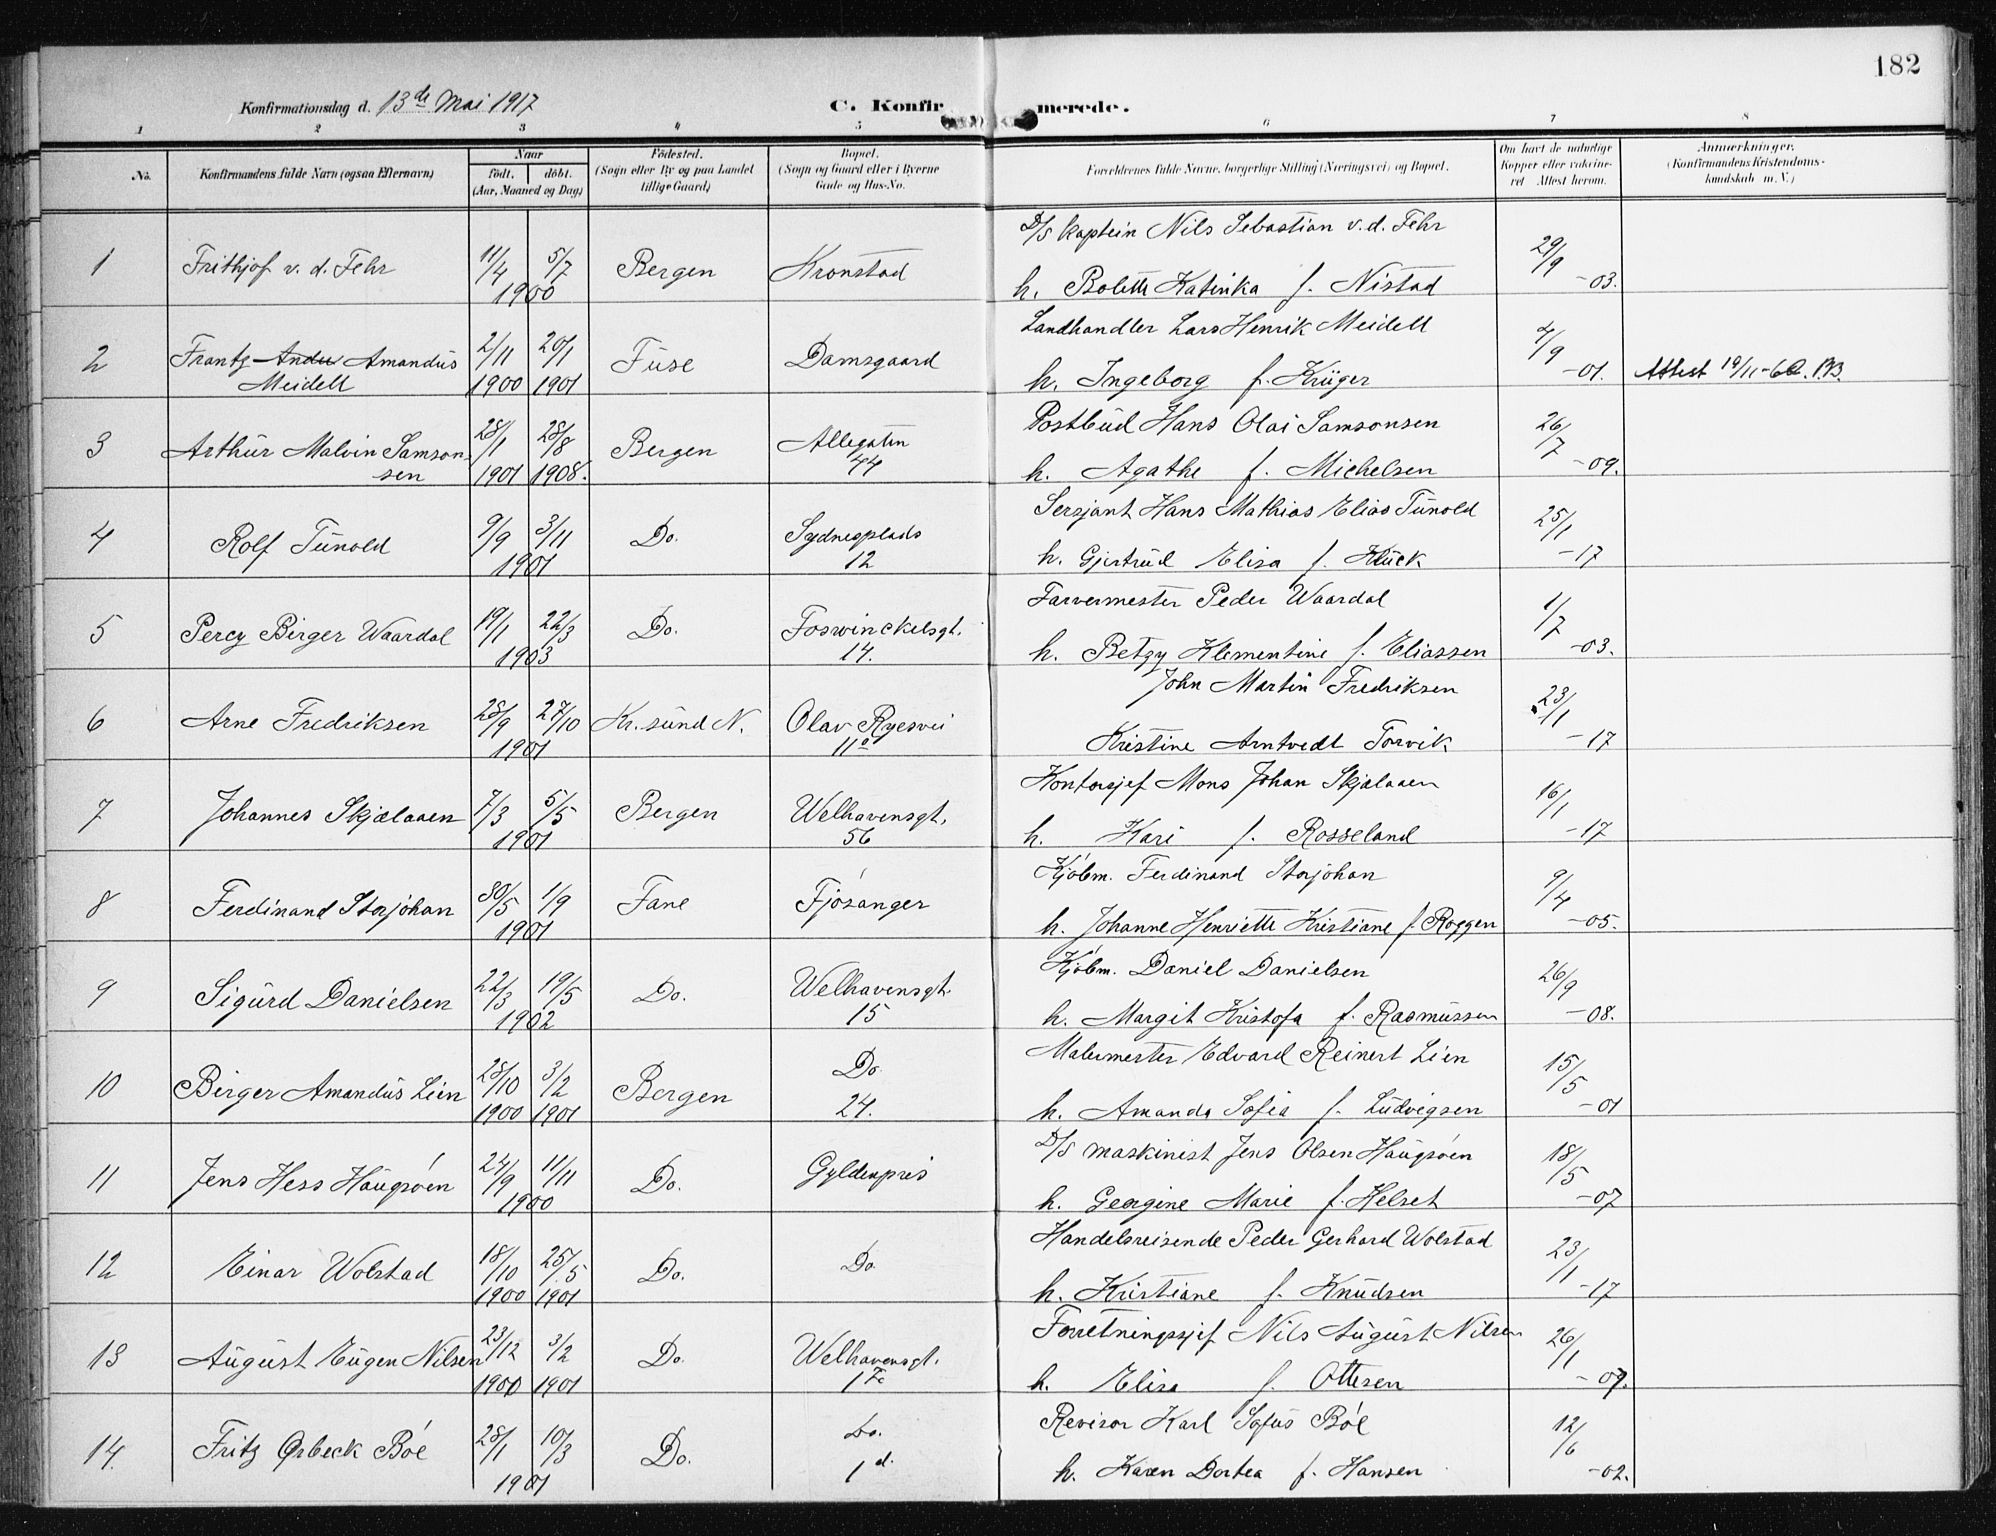 182
Konfirmationsdag d. 13de Mai 1917
C. Konfirmerede.
1 2 3 4 5 6 7 8
No.
Konfirmandens fulde Navn (ogsaa Efternavn)
Naar
födt. döbt.
(Aar, Maaned og Dag)
Födested.
(Sogn eller By og paa Landet
tillige Gaard)
Bopæl.
(Sogn og Gaard eller i Byerne
Gade og Hus-No.
Forældrenes fulde Navne, borgerlige Stilling (Næringsvei) og Bopæl.
Om havt de naturlige
Kopper eller vakcine-
ret Attest herom.
Anmærkninger.
(Konfirmandens Kristendoms-
kundskab m. V.)
D/S kaptein Nils Sebastian v. d. Fehr
1 Frithjof v. d. Fehr 11/4 5/7 Bergen Kronstad 29/9
1900 h. Bolette Katinka f. Nistad -03.
Landhandler Lars Henrik Meidell
2 Frantz Andu Amandus 2/11 20/1 Fuse Damsgaard 4/9
Meidell 1900 1901 h. Ingeborg f. Krüger -01. Attest 19/11-60. B.
Postbud Hans Olai Samsonsen
3 Arthur Malvin Samson- 28/1 28/8 Bergen Allegaten 26/7
sen 1901 1908. 44 h. Agathe f. Michelsen -09.
Sersjant Hans Mathias Elias Tunold
4 Rolf Tunold 9/9 3/11 Do. Sydnesplads 25/1
1901 12 h. Gjertrud Elisa f. Kluck -17
Farvermester Peder Waardal
5 Percy Birger Waardal 19/1 22/3 Do. Foswinckelsgt. 1/7
1903 14. h. Betzy Klementine f. Eliassen -03.
John Martin Fredriksen
6 Arne Fredriksen 28/9 27/10 Kr.sund N. Olav Ryesvei 23/1
1901 11a Kristine Arntvedt Torvik -17
Kontorsjef Mons Johan Skjelaaen
7 Johannes Skjelaaen 7/3 5/5 Bergen Welhavensgt. 16/1
1901 56 h. Kari f. Rosseland -17
Kjöbm. Ferdinand Storjohan
8 Ferdinand Storjohan 30/5 1/9 Fane Fjösanger 9/4
1901 h. Johanne Henriette Kristiane f. Roggen -05.
Kjöbm. Daniel Danielsen
9 Sigurd Danielsen 22/3 19/5 Do. Welhavensgt. 26/9
1902 15 h. Margit Kristofa f. Rasmussen -08.
Malermester Edvard Reinert Lien
10 Birger Amandus Lien 28/10 3/2 Bergen Do 15/5
1900 1901 24. h. Amanda Sofia f. Ludvigsen -01
D/S maskinist Jens Olsen Haugsöen
11 Jens Hess Haugsöen 24/9 11/11 Do. Gyldenpris 18/5
1900 h. Georgine Marie f. Helset -07
Handelsreisende Peder Gerhard Wolstad
12 Einar Wolstad 18/10 25/5 Do. Do 23/1
1900 1901 h. Kristiane f. Knudsen -17
Forretningssjef Nils August Nilsen
13 August Eugen Nilsen 23/12 3/2 Do. Welhavensgt. 26/1
1900 1901 h. Elisa f. Ottesen -07.
Revisor Karl Sofus Böe
14. Fritz Ørbeck Böe 28/1 10/3 Do. Do. 12/6
1901 1d. h. Karen Dortea f. Hansen -02.